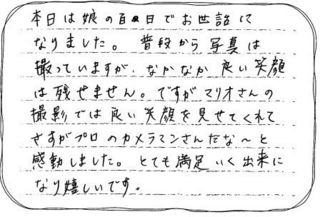 本日は娘の百日でお世話に
なりました。普段から写真は
撮っていますが、なかなか良い笑顔
は残せません。ですがマリオさんの
撮影では良い笑顔を見せてくれて
さすがプロのカメラマンさんだな〜と
感動しました。とても満足いく出来に
なり嬉しいです。